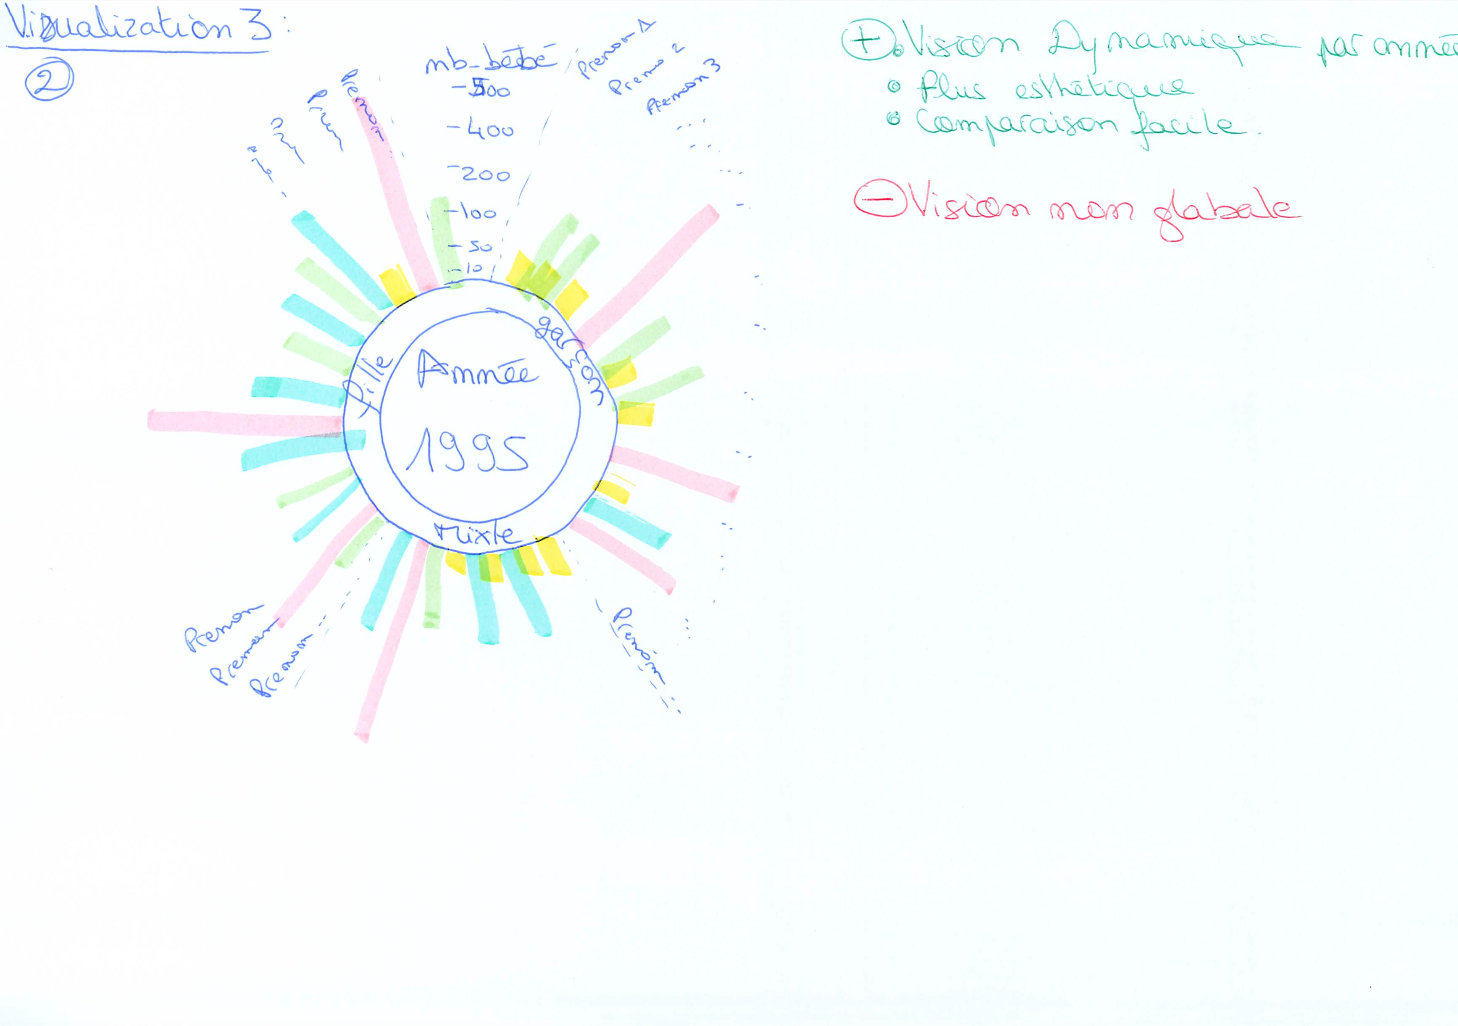 Visualization 3 :
2
nb-bébé
-500
-400
-200
-100
-50
-10
Prenom 1
Prenom 2
Prenom 3
Prenom
Prenom
garçon
fille
Mixte
Année
1995
Prenom
Prenom
Prenom
Prenom
+ • Vision Dynamique par année
• Plus esthétique
• Comparaison facile.
- Vision non globale